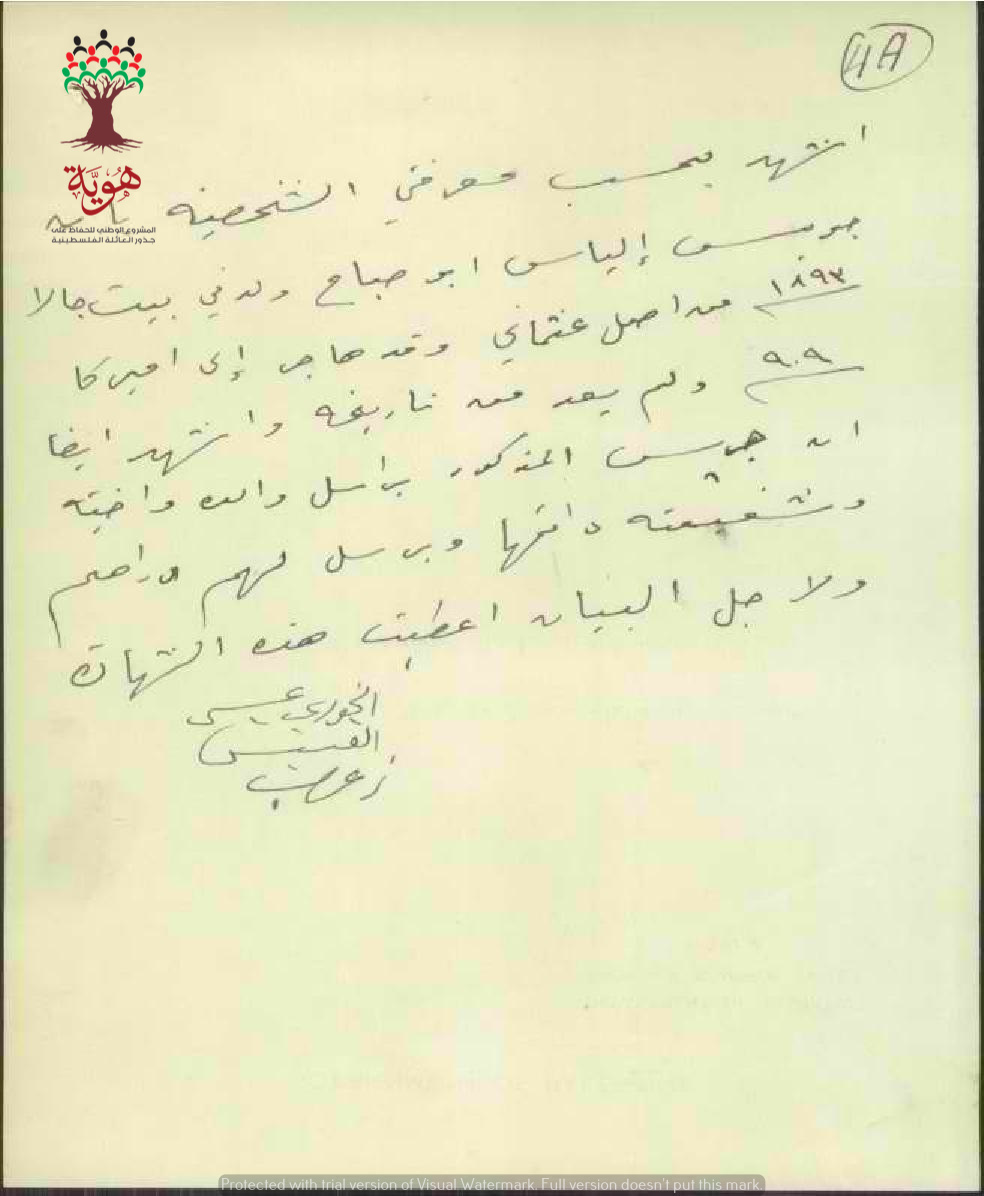 4A
هُويَّة
المشروع الوطني للحفاظ على
جذور العائلة الفلسطينية
اشهد بحسب معرفتي الشخصية بانه
جريس إلياس ابو صباح ولد في بيت جالا
١٨٩٣ من اصل عثماني وقد هاجر إلى اميركا
٩٠٩ ولم يعد من تاريخه واشهد ايضا
ان جريس المذكور يراسل والده واخيته
وشقيقته دائما ويرسل لهم دراهم
ولاجل البيان اعطيت هذه الشهادة
الخوري عيسى
القسيس
Protected with trial version of Visual Watermark. Full version doesn't put this mark.